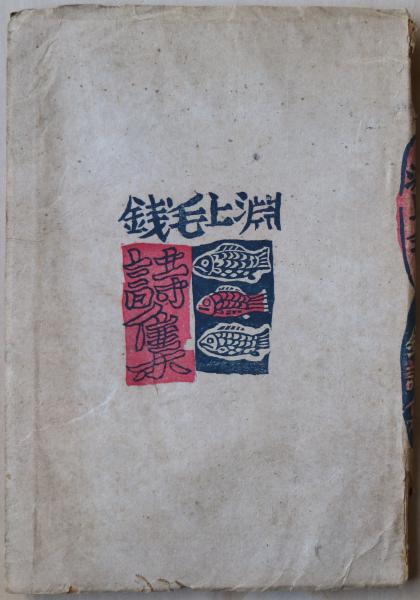 淵上毛錢
詩集